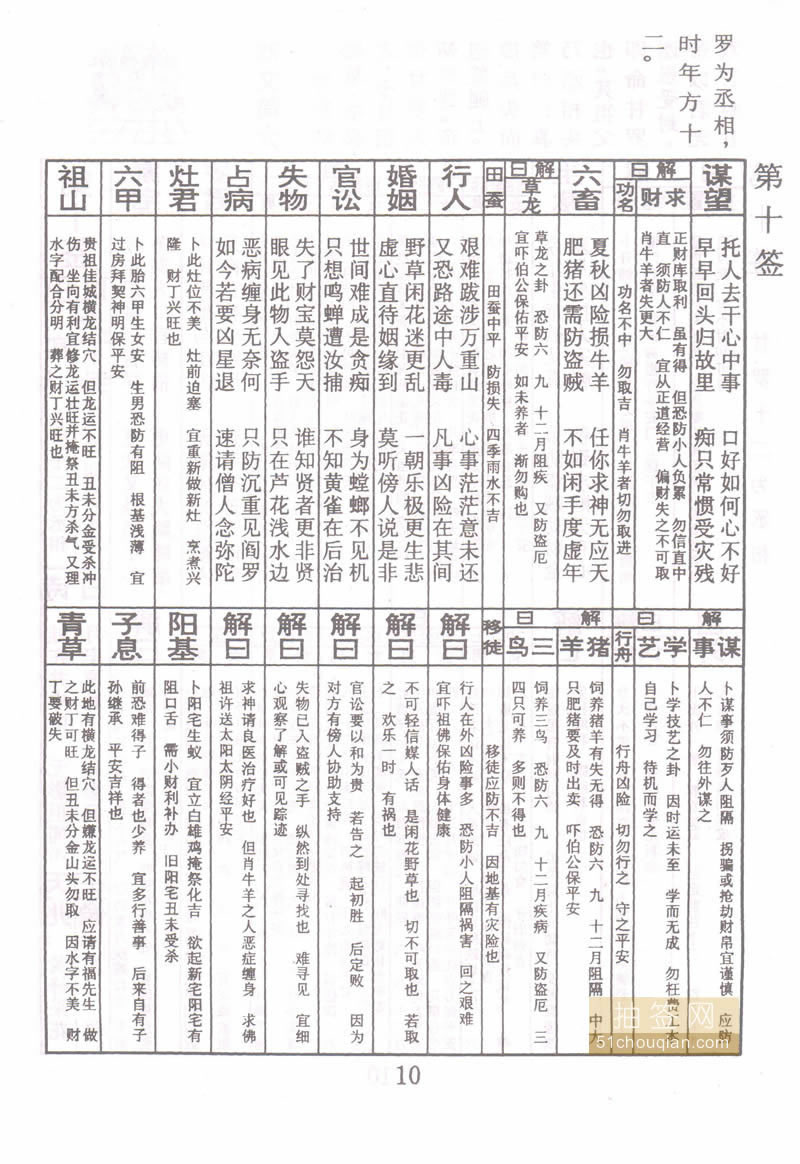 罗为丞相，
时年方十
二。
第十签
谋望
托人去干心中事 口好如何心不好
早早回头归故里 痴只常惯受灾残
解曰
求财
正财库取利 虽有得 但恐防小人负累 勿信直中
直 须防人不仁 宜从正道经营 偏财失之不可取
肖牛羊者失更大
功名
功名不中 勿取吉 肖牛羊者切勿取进
六畜
夏秋凶险损牛羊 任你求神无应天
肥猪还需防盗贼 不如闲手度虚年
解曰
草龙
草龙之卦 恐防六 九 十二月阻疾 又防盗厄
宜吓伯公保佑平安 如未养者 渐勿购也
田蚕
田蚕中平 防损失 四季雨水不吉
行人
艰难跋涉万重山 心事茫茫意未还
又恐路途中人毒 凡事凶险在其间
婚姻
野草闲花迷更乱 一朝乐极更生悲
虚心直待姻缘到 莫听傍人说是非
官讼
世间难成是贪痴 身为螳螂不见机
只想鸣蝉遭汝捕 不知黄雀在后治
失物
失了财宝莫怨天 谁知贤者更非贤
眼见此物入盗手 只在芦花浅水边
占病
恶病缠身无奈何 只防沉重见阎罗
如今若要凶星退 速请僧人念弥陀
灶君
卜此灶位不美 灶前迫塞 宜重新做新灶 烹煮兴
隆 财丁兴旺也
六甲
卜此胎六甲生女安 生男恐防有阻 根基浅薄 宜
过房拜契神明保平安
祖山
贵祖佳城横龙结穴 但龙运不旺 丑未分金受杀冲
伤 坐向有利宜修龙运壮旺并掩祭丑未方杀气 又理
水字配合分明 葬之财丁兴旺也
解曰
谋事
卜谋事须防歹人阻隔 拐骗或抢劫财帛宜谨慎 应防
人不仁 勿往外谋之
解曰
学艺
卜学技艺之卦 因时运未至 学而无成 勿枉费工本
自己学习 待机而学之
行舟
行舟凶险 切勿行之 守之平安
解曰
猪羊
饲养猪羊有失无得 恐防六 九 十二月阻隔 中大
只肥猪要及时出卖 吓伯公保平安
三鸟
饲养三鸟 恐防六 九 十二月疾病 又防盗厄 三
四只可养 多则不得也
移徒
移徒应防不吉 因地基有灾险也
解曰
行人在外凶险事多 恐防小人阻隔祸害 回之艰难
宜吓祖佛保佑身体健康
解曰
不可轻信媒人话 是闲花野草也 切不可取也 若取
之 欢乐一时 有祸也
解曰
官讼要以和为贵 若告之 起初胜 后定败 因为
对方有傍人协助支持
解曰
失物已入盗贼之手 纵然到处寻找也 难寻见 宜细
心观察了解或可见踪迹
解曰
求神请良医治疗好也 但肖牛羊之人恶症缠身 求佛
祖许送太阳太阴经平安
阳基
卜阳宅生蚁 宜立白雄鸡掩祭化吉 欲起新宅阳宅有
阻口舌 需小财利补办 旧阳宅丑未受杀
子息
前恐难得子 得者也少养 宜多行善事 后来自有子
孙继承 平安吉祥也
青草
此地有横龙结穴 但嫌龙运不旺 应请有福先生 做
之财丁可旺 但丑未分金山头勿取 因水字不美 财
丁要破失
抽签网
51chouqian.com
10